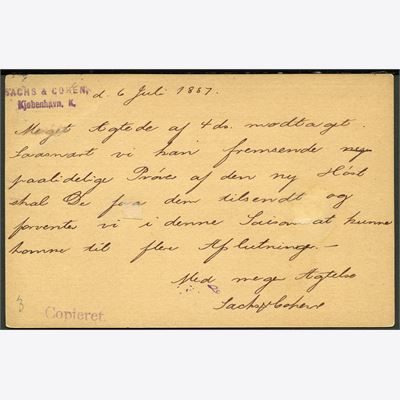 SACHS & COHEN,
Kjøbenhavn. K.
d. 6 Juli 1887.
Meget Agtede af 4 ds. modtaget.
Saasnart vi kan fremsende
paalidelige Prøve af den ny Höst
skal De faa dem tilsendt og
forventer vi i denne Saison at kunne
komme til flere Afslutninge. —
Med megen Agtelse
Sachs & Cohen
3
Copieret.